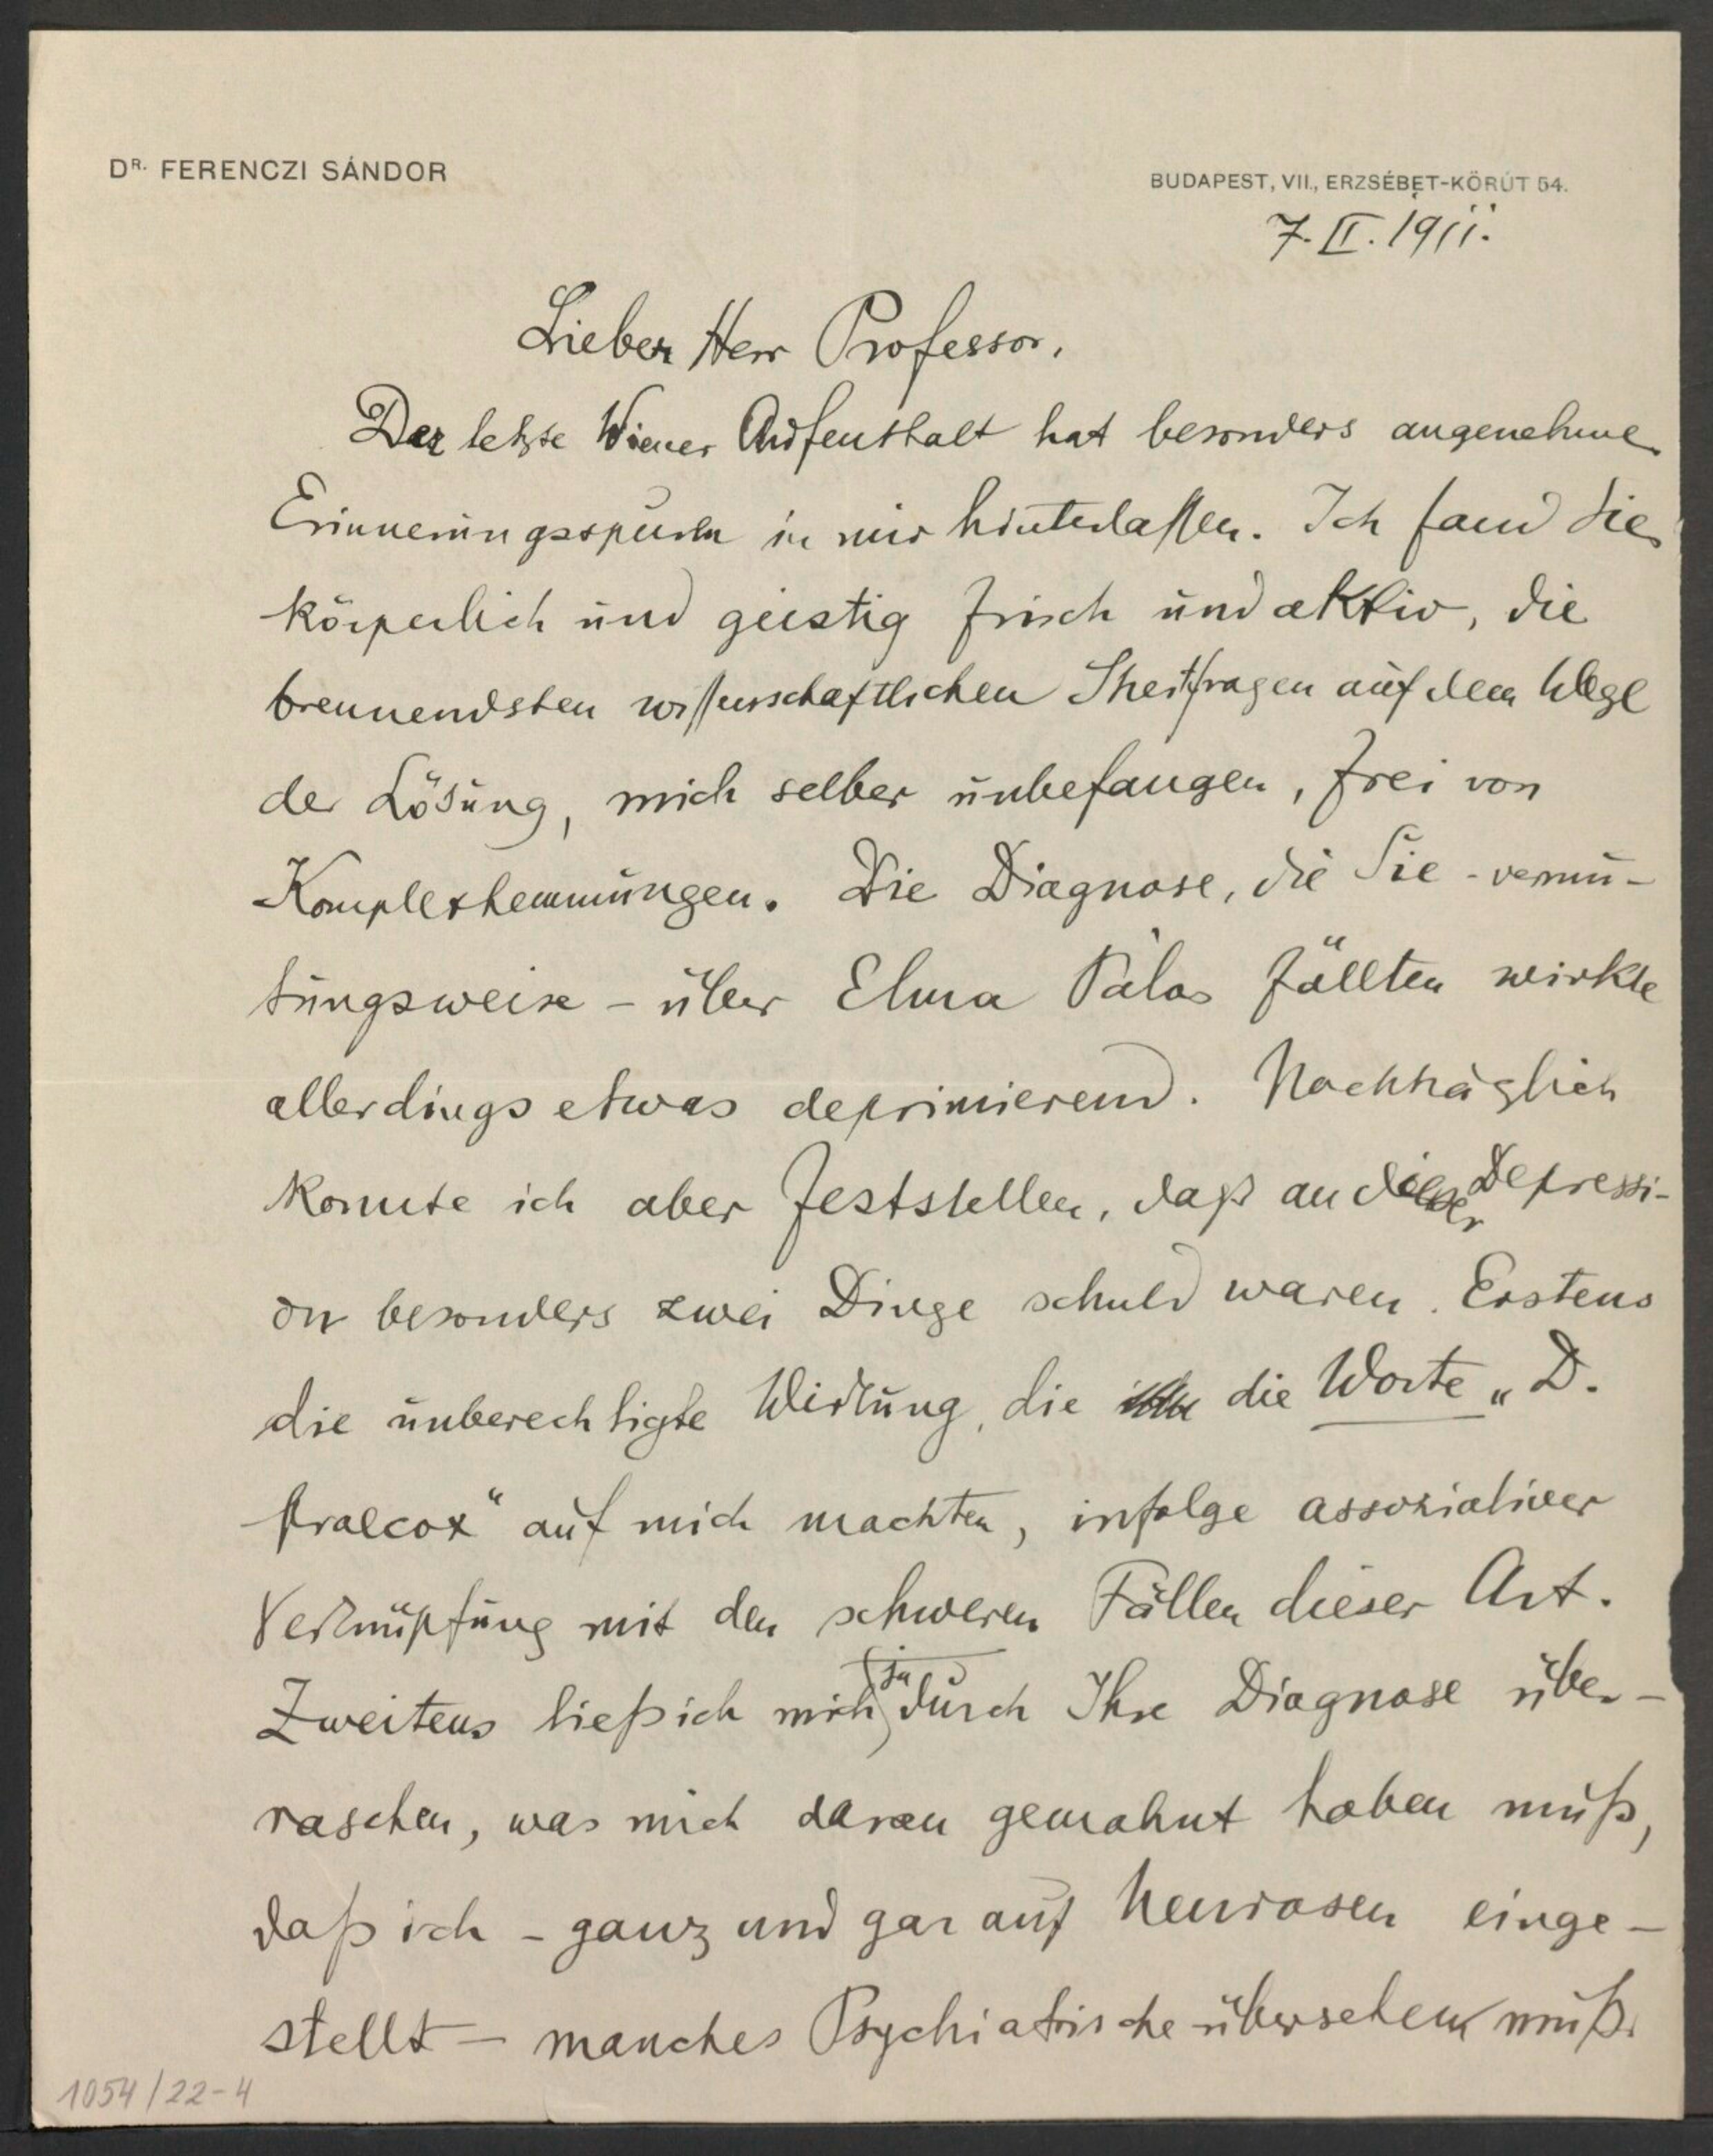 DR. FERENCZI SÁNDOR
BUDAPEST, VII., ERZSÉBET-KÖRÚT 54.
7. II. 1911.
Lieber Herr Professor,
Der letzte Wiener Aufenthalt hat besonders angenehme
Erinnerungsspuren in mir hinterlassen. Ich fand Sie
körperlich und geistig frisch und aktiv, die
brennendsten wissenschaftlichen Streitfragen auf dem Wege
der Lösung, mich selber unbefangen, frei von
Komplexhemmungen. Die Diagnose, die Sie - vermu-
tungsweise - über Elma Pálos fällten wirkte
allerdings etwas deprimierend. Nachträglich
konnte ich aber feststellen, daß an dieser Depressi-
on besonders zwei Dinge schuld waren. Erstens
die unberechtigte Wirkung, die die Worte „D.
praecox“ auf mich machten, infolge assoziativer
Verknüpfung mit den schweren Fällen dieser Art.
Zweitens ließ ich mich ja durch Ihre Diagnose über-
raschen, was mich daran gemahnt haben muß,
daß ich - ganz und gar auf Neurosen einge-
stellt - manches Psychiatrische übersehen muß.
1054/22-4